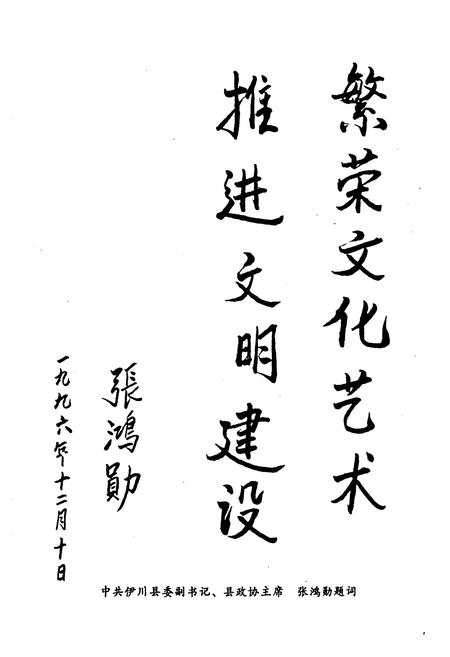 繁荣文化艺术
推进文明建设
張鸿勋
一九九六年十二月十日
中共伊川县委副书记、县政协主席　张鸿勋题词